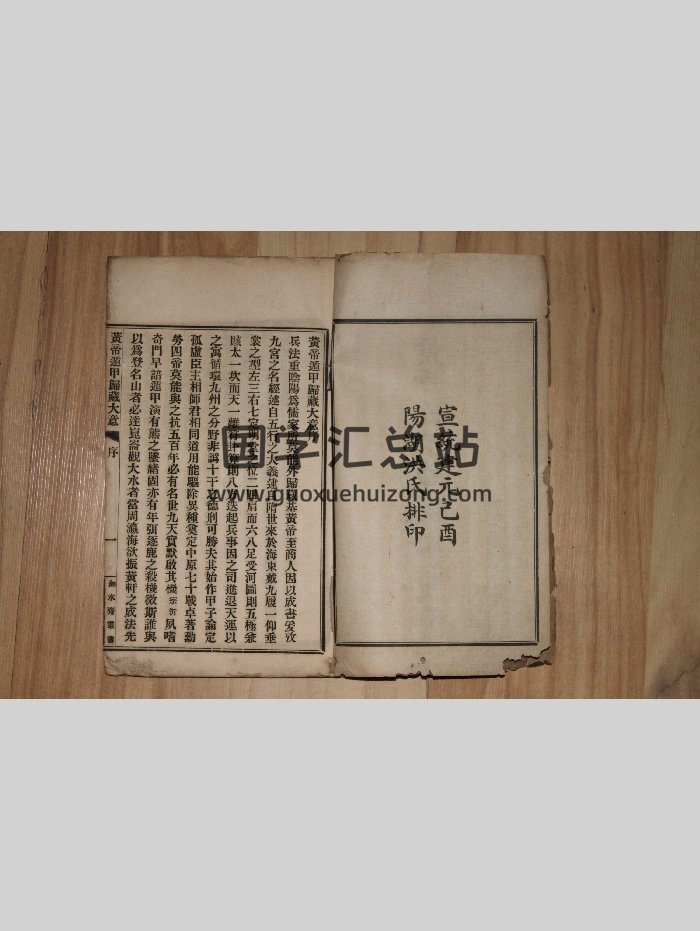 宣統建元己酉
陽湖洪氏排印
黃帝遁甲歸藏大意序
兵法重陰陽爲儒家所莫能外歸藏基黃帝至商人因以成書爰攷
九宮之名經述自五行之大義逮自隋世來於海東戴九履一仰垂
裳之型左三右七定 位二四肩而六八足受河圖則五極兼
賅太一坎而天一離符 則八方迭起兵事因之司進退天運以
之寓循環九州之分野非謬十干之德刑可勝夫其始作甲子論定
孤虛臣主相師君相同道用能驅除異種奠定中原七十戰卓著勳
勞四帝莫能與之抗五百年必有名世九天實默啟其機 夙嗜
奇門早諳遁甲演有熊之墜緒固亦有年弭逐鹿之殺機微斯誰與
以爲登名山者必達崑崙觀大水者當周瀛海欲振黃軒之成法先
黃帝遁甲歸藏大意
序
一
水齋叢書
国学汇总站
www.guoxuehuizong.com